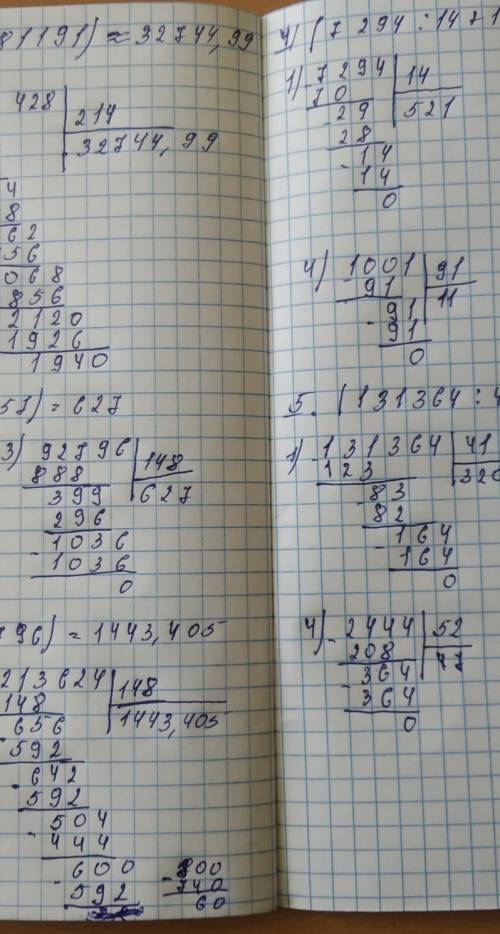 81191) ≈ 32744,99
428 | 214
32744,99
4
8
62
56
068
856
2120
1926
1940
57) = 627
3) 92796 | 148
888 | 627
399
296
1036
1036
0
796) = 1443,405
213624 | 148
148 | 1443,405
656
592
642
592
504
444
600
592
800
740
60
4) (7 294 : 14 + 1
1) 7294 | 14
70 | 521
29
28
14
14
0
4) 1001 | 91
91 | 11
91
91
0
5. (131364 : 4
1) 131364 | 41
123 | 320
83
82
164
164
0
4) 2444 | 52
208 | 47
364
364
0